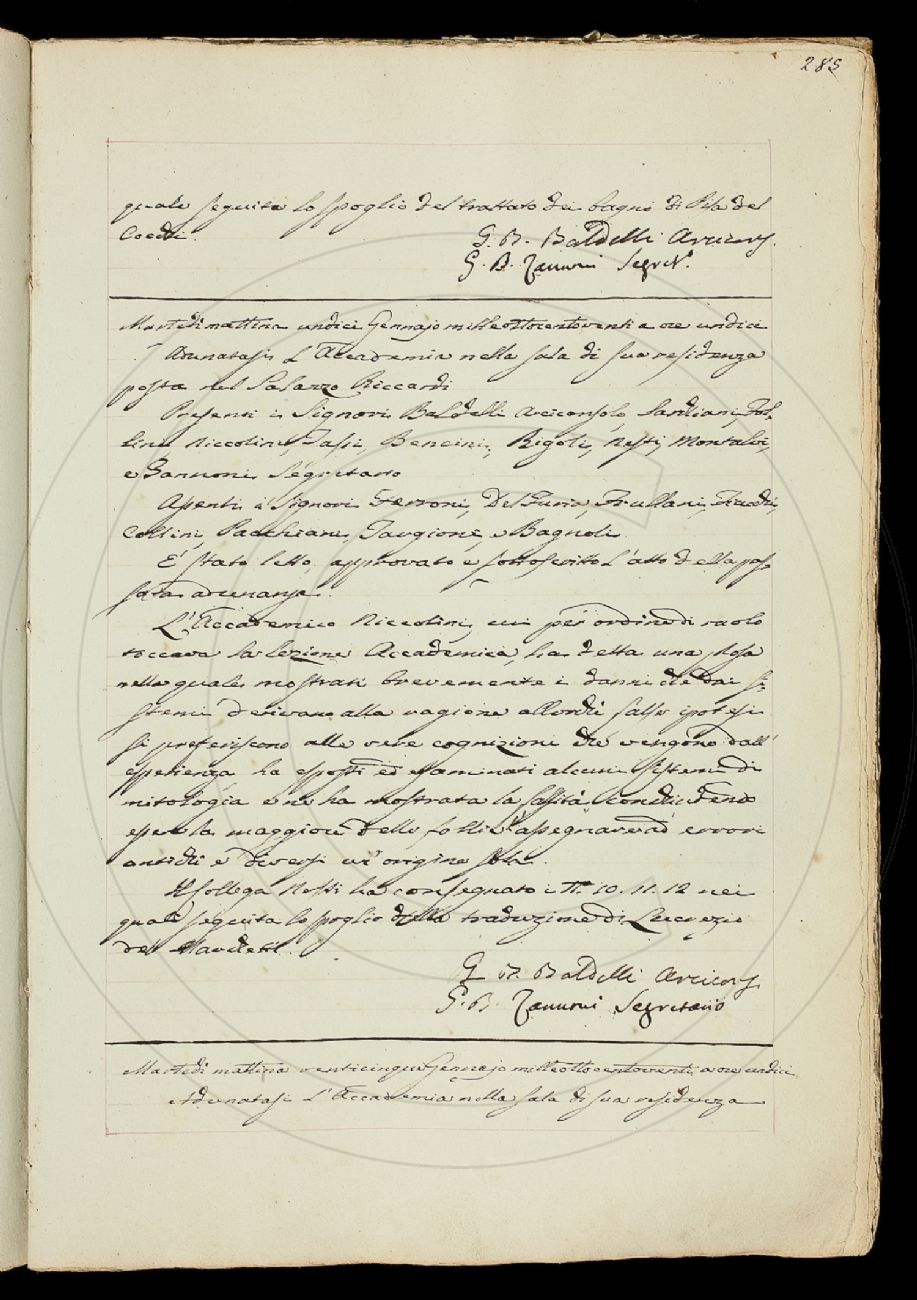 285
quale seguita lo spoglio del trattato dei bagni di Pisa del
Cocchi.
G. B. Baldelli Arcicons.
G. B. Zannoni Segret.º
Martedi mattina undici Gennajo mille ottocento venti a ore undici
Adunatasi L'Accademia nella sala di sua residenza
posta nel Palazzo Riccardi
Presenti i Signori Baldelli Arciconsolo, Sarchiani, Fol-
lini Niccolini, Bencini, Rigoli, Nesti, Montalvi,
e Zannoni Segretario
Assenti i Signori Ferroni, Del Furia, Frullani, Fiacchi,
Collini, Pacchiani, Targioni, e Bagnoli.
E' stato letto, approvato e sottoscritto L'atto della pas-
sata adunanza.
L'Accademico Niccolini, cui per ordine di ruolo
toccava la Lezione Accademica, ha detta una Prosa
nella quale mostrati brevemente i danni che dai si-
stemi derivano alla ragione allorchè false ipotesi
si preferiscono alle vere cognizioni che vengono dall'
esperienza, ha esposti ed esaminati alcuni sistemi di
mitologia e ne ha mostrata la falsità, concludendo
essere la maggiore delle follie assegnare ad errori
antichi e diversi un' origine sola.
Il Collega Nesti ha consegnato i 10. 11. 12 nei
quali seguita lo spoglio della traduzione di Lucrezio
del Marchetti.
G. B. Baldelli Arcicons.
G. B. Zannoni Segretario
Martedi mattina venticinque Gennajo mille ottocento venti a ore undici
Adunatasi L'Accademia nella sala di sua residenza